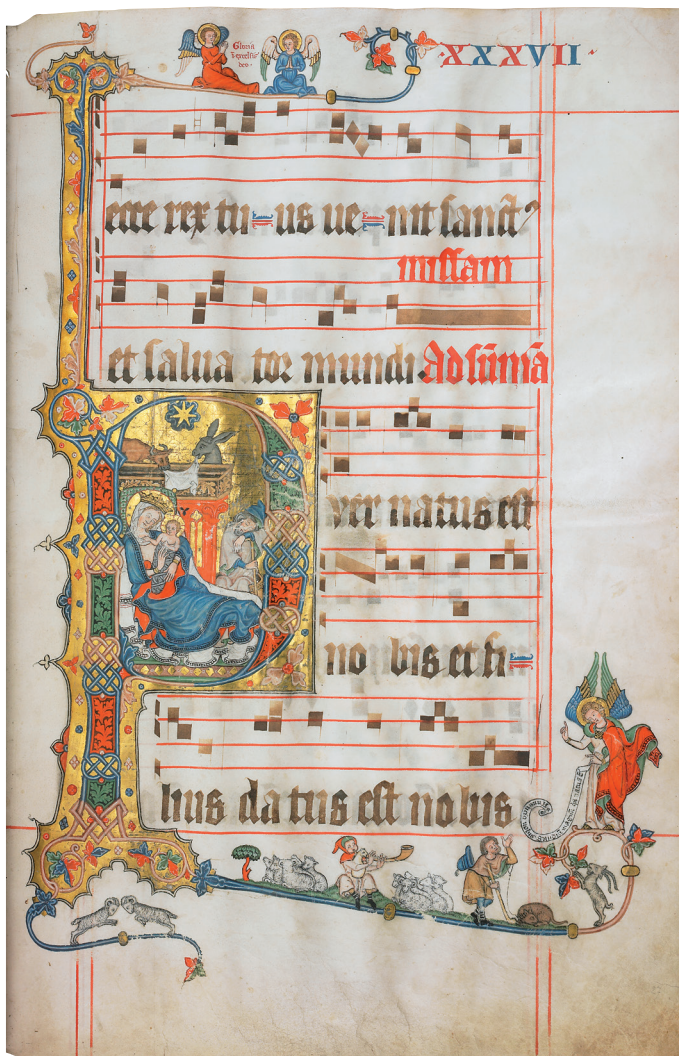 XXXVII
Gloria
i excelsis
deo
ecce rex tu us ue nit sanct9
missam
et salua tor mundi Ad sūmā
Puer natus est
no bis et fi
lius da tus est nobis